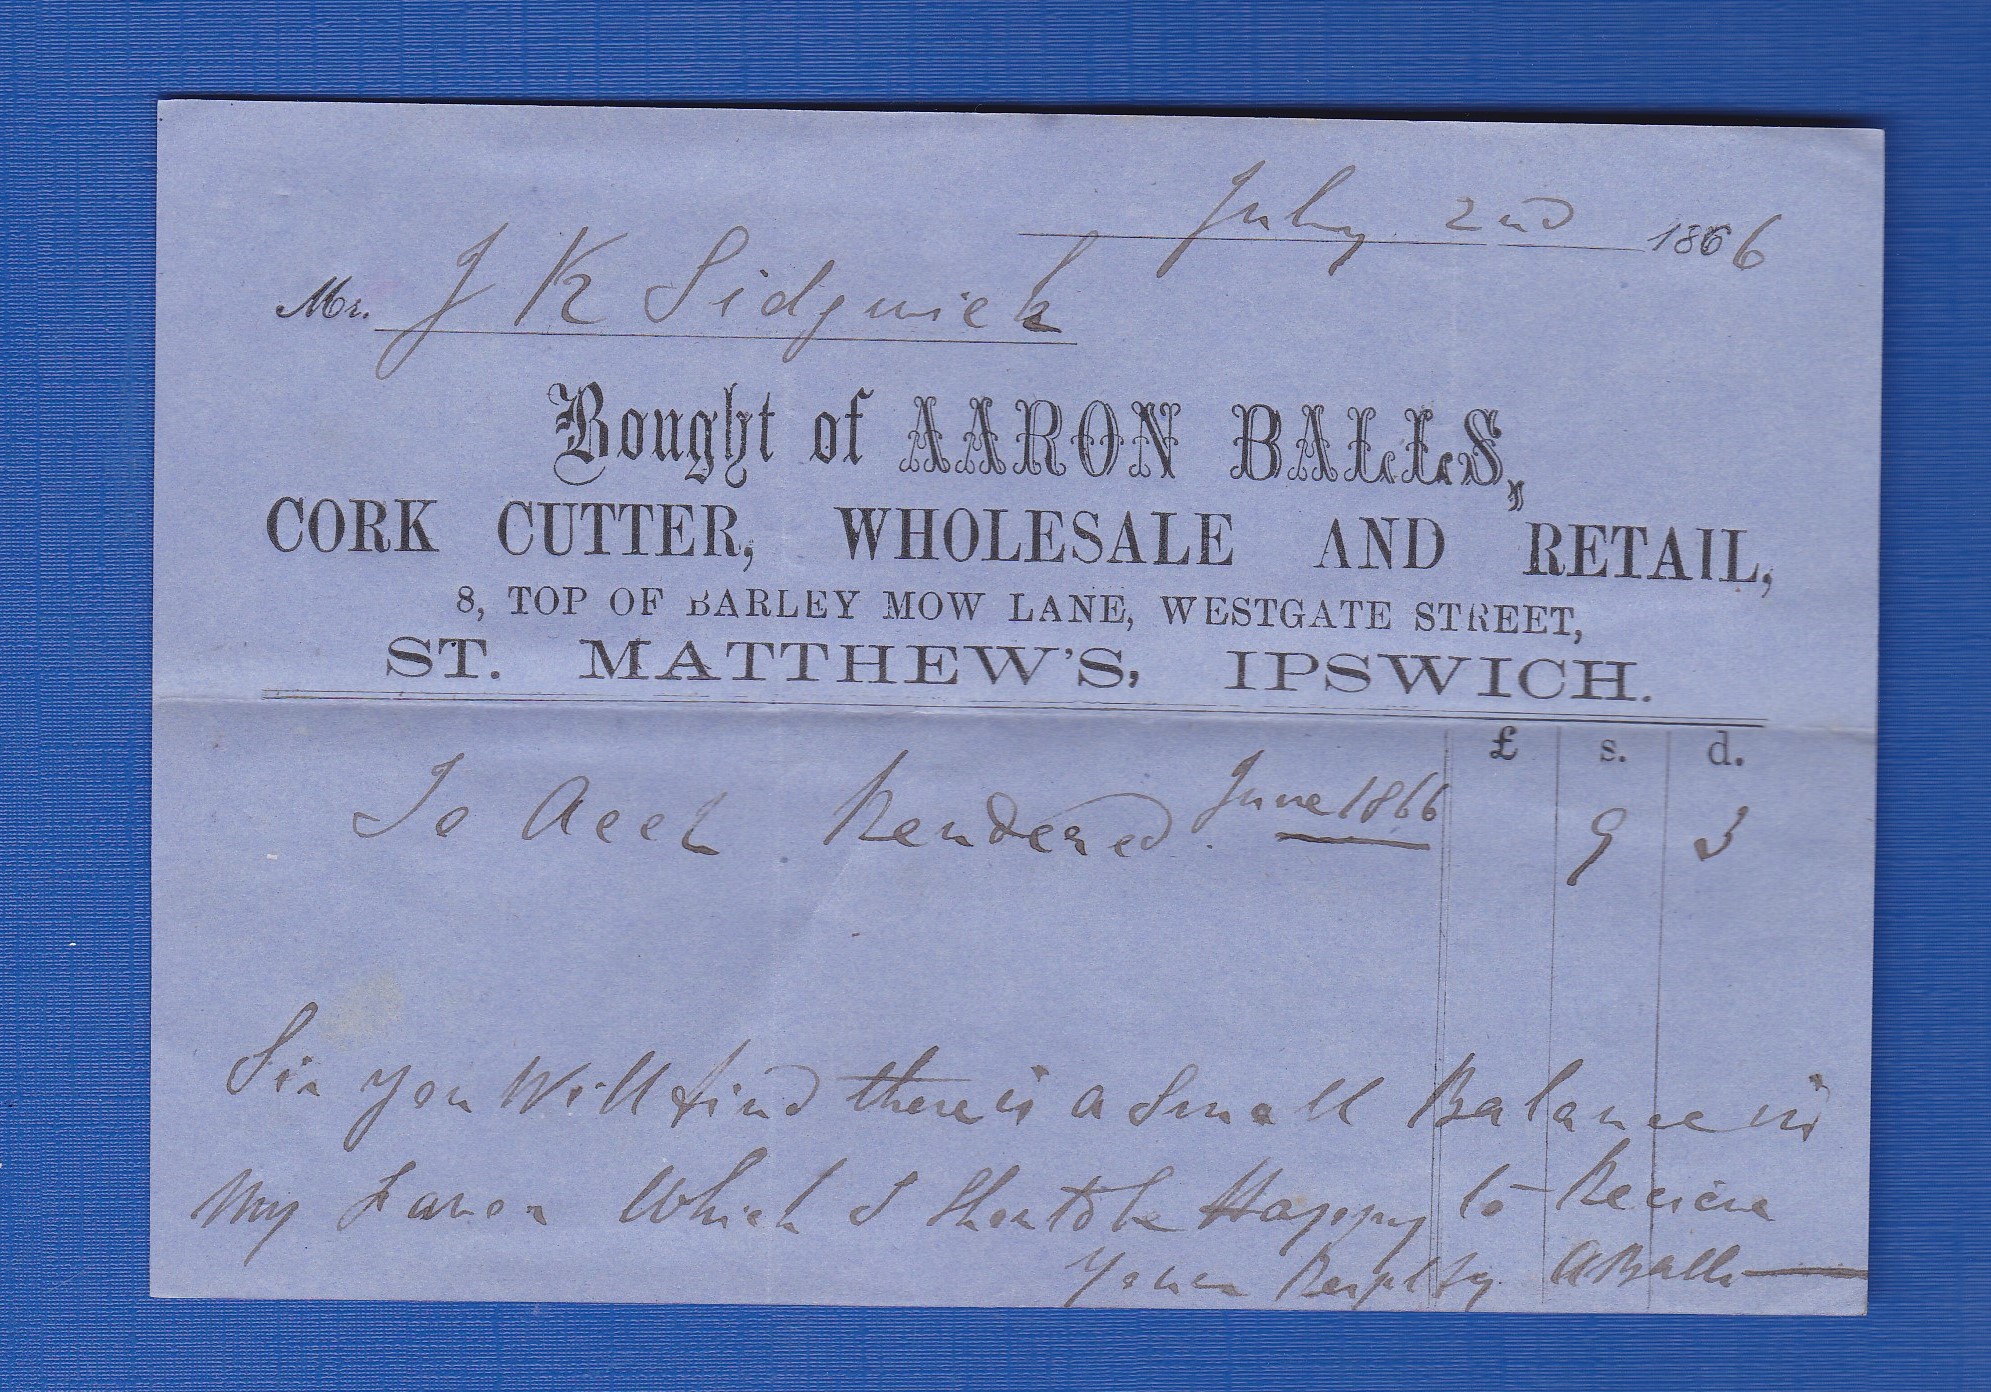 July 2nd 1866
Mr. J K Sidgwick
Bought of AARON BALLS,
CORK CUTTER, WHOLESALE AND RETAIL,
8, TOP OF BARLEY MOW LANE, WESTGATE STREET,
ST. MATTHEW'S, IPSWICH.
£ s. d.
To Acct Rendered June 1866 9 3
Sir you Will find there is a Small Balance in
My Favor Which I Should be Happy to Recieve
Yours Respltfy ABalls